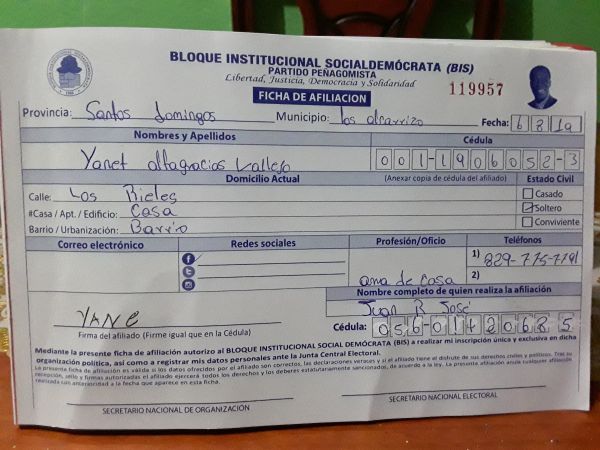 BLOQUE INSTITUCIONAL SOCIALDEMÓCRATA (BIS)
PARTIDO PEÑAGOMISTA
Libertad, Justicia, Democracia y Solidaridad
FICHA DE AFILIACION
119957
Provincia: Santos domingos Municipio: los alcarrizo Fecha: 6 8 19
Nombres y Apellidos Cédula
Yanet altagracios Vallejo 001-1906052-3
Domicilio Actual (Anexar copia de cédula del afiliado) Estado Civil
Calle: Los Rieles Casado
#Casa / Apt. / Edificio: Casa Soltero
Barrio / Urbanización: Barrio Conviviente
Correo electrónico Redes sociales Profesión/Oficio Teléfonos
1) 829-775-7791
ama de casa 2)
Nombre completo de quien realiza la afiliación
Juan R José
YANE Cédula: 056-0142068-5
Firma del afiliado (Firme igual que en la Cédula)
Mediante la presente ficha de afiliación autorizo al BLOQUE INSTITUCIONAL SOCIAL DEMÓCRATA (BIS) a realizar mi inscripción única y exclusiva en dicha
organización política, así como a registrar mis datos personales ante la Junta Central Electoral.
La presente ficha de afiliación es válida si los datos ofrecidos por el afiliado son correctos, las declaraciones veraces y si el afiliado tiene el disfrute de sus derechos civiles y políticos. Tras su
recepción, sello y firmas autorizadas el afiliado ejercerá todos los derechos y los deberes estatutariamente sancionados, de acuerdo a la ley. La presente afiliación anula cualquier afiliación
realizada con anterioridad a la fecha que aparece en esta ficha.
SECRETARIO NACIONAL DE ORGANIZACIÓN SECRETARIO NACIONAL ELECTORAL